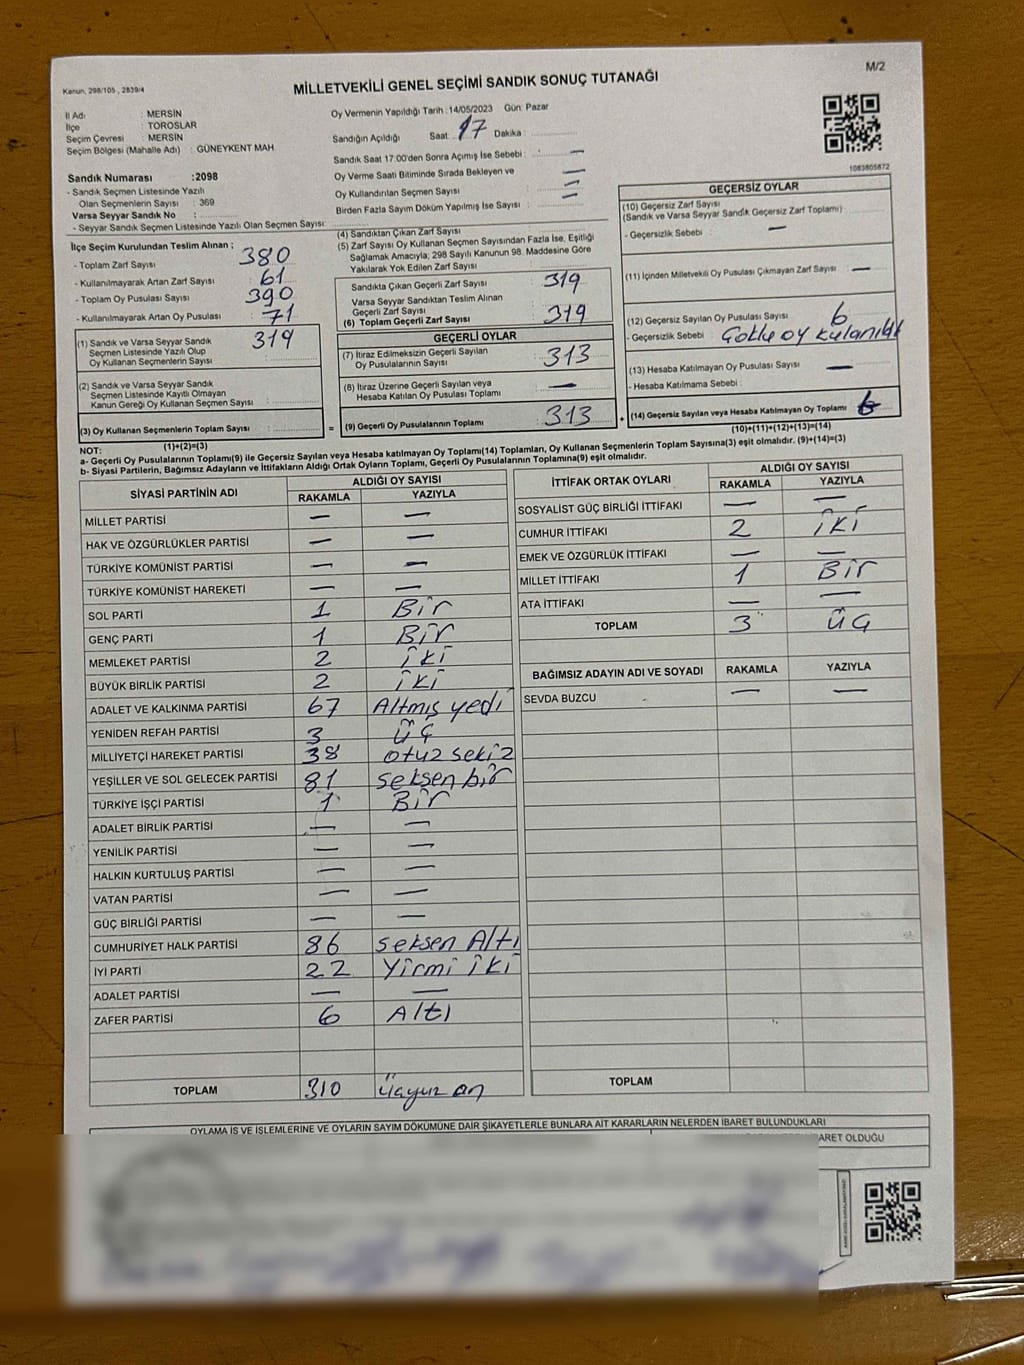 M/2
Kanun, 298/105 , 2839/4
MİLLETVEKİLİ GENEL SEÇİMİ SANDIK SONUÇ TUTANAĞI
İl Adı : MERSİN
İlçe : TOROSLAR
Seçim Çevresi : MERSİN
Seçim Bölgesi (Mahalle Adı) : GÜNEYKENT MAH.
Sandık Numarası :2098
- Sandık Seçmen Listesinde Yazılı
Olan Seçmenlerin Sayısı : 369
Varsa Seyyar Sandık No :
- Seyyar Sandık Seçmen Listesinde Yazılı Olan Seçmen Sayısı :
Oy Vermenin Yapıldığı Tarih :14/05/2023 Gün: Pazar
Sandığın Açıldığı Saat: 17 Dakika :
Sandık Saat 17:00'den Sonra Açımış İse Sebebi : —
Oy Verme Saati Bitiminde Sırada Bekleyen ve
Oy Kullandırılan Seçmen Sayısı : —
Birden Fazla Sayım Döküm Yapılmış İse Sayısı : —
1083805872
İlçe Seçim Kurulundan Teslim Alınan ;
- Toplam Zarf Sayısı 380
- Kullanılmayarak Artan Zarf Sayısı : 61
- Toplam Oy Pusulası Sayısı : 390
- Kullanılmayarak Artan Oy Pusulası : 71
(1) Sandık ve Varsa Seyyar Sandık 319
Seçmen Listesinde Yazılı Olup
Oy Kullanan Seçmenlerin Sayısı
(2) Sandık ve Varsa Seyyar Sandık
Seçmen Listesinde Kayıtlı Olmayan
Kanun Gereği Oy Kullanan Seçmen Sayısı :
(3) Oy Kullanan Seçmenlerin Toplam Sayısı :
(1)+(2)=(3)
(4) Sandıktan Çıkan Zarf Sayısı :
(5) Zarf Sayısı Oy Kullanan Seçmen Sayısından Fazla İse, Eşitliği
Sağlamak Amacıyla; 298 Sayılı Kanunun 98. Maddesine Göre
Yakılarak Yok Edilen Zarf Sayısı :
Sandıkta Çıkan Geçerli Zarf Sayısı : 319
Varsa Seyyar Sandıktan Teslim Alınan
Geçerli Zarf Sayısı :
(6) Toplam Geçerli Zarf Sayısı : 319
GEÇERLİ OYLAR
(7) İtiraz Edilmeksizin Geçerli Sayılan
Oy Pusulalarının Sayısı : 313
(8) İtiraz Üzerine Geçerli Sayılan veya
Hesaba Katılan Oy Pusulası Toplamı : —
= (9) Geçerli Oy Pusulalarının Toplamı : 313 +
GEÇERSİZ OYLAR
(10) Geçersiz Zarf Sayısı
(Sandık ve Varsa Seyyar Sandık Geçersiz Zarf Toplamı) :
- Geçersizlik Sebebi : —
(11) İçinden Milletvekili Oy Pusulası Çıkmayan Zarf Sayısı : —
(12) Geçersiz Sayılan Oy Pusulası Sayısı : 6
- Geçersizlik Sebebi : Çoklu oy
(13) Hesaba Katılmayan Oy Pusulası Sayısı : —
- Hesaba Katılmama Sebebi :
(14) Geçersiz Sayılan veya Hesaba Katılmayan Oy Toplamı : 6
(10)+(11)+(12)+(13)=(14)
NOT:
a- Geçerli Oy Pusulalarının Toplamı(9) ile Geçersiz Sayılan veya Hesaba katılmayan Oy Toplamı(14) Toplamları, Oy Kullanan Seçmenlerin Toplam Sayısına(3) eşit olmalıdır. (9)+(14)=(3)
b- Siyasi Partilerin, Bağımsız Adayların ve İttifakların Aldığı Ortak Oyların Toplamı, Geçerli Oy Pusulalarının Toplamına(9) eşit olmalıdır.
SİYASİ PARTİNİN ADI ALDIĞI OY SAYISI
RAKAMLA YAZIYLA
MİLLET PARTİSİ — —
HAK VE ÖZGÜRLÜKLER PARTİSİ — —
TÜRKİYE KOMÜNİST PARTİSİ — —
TÜRKİYE KOMÜNİST HAREKETİ — —
SOL PARTİ 1 Bir
GENÇ PARTİ 1 Bir
MEMLEKET PARTİSİ 2 iki
BÜYÜK BİRLİK PARTİSİ 2 iki
ADALET VE KALKINMA PARTİSİ 67 Altmış yedi
YENİDEN REFAH PARTİSİ 3 üç
MİLLİYETÇİ HAREKET PARTİSİ 38 otuz sekiz
YEŞİLLER VE SOL GELECEK PARTİSİ 81 seksen bir
TÜRKİYE İŞÇİ PARTİSİ 1 Bir
ADALET BİRLİK PARTİSİ — —
YENİLİK PARTİSİ — —
HALKIN KURTULUŞ PARTİSİ — —
VATAN PARTİSİ — —
GÜÇ BİRLİĞİ PARTİSİ — —
CUMHURİYET HALK PARTİSİ 86 seksen Altı
İYİ PARTİ 22 Yirmi iki
ADALET PARTİSİ — —
ZAFER PARTİSİ 6 Altı
TOPLAM 310 üçyüz on
İTTİFAK ORTAK OYLARI ALDIĞI OY SAYISI
RAKAMLA YAZIYLA
SOSYALİST GÜÇ BİRLİĞİ İTTİFAKI — —
CUMHUR İTTİFAKI 2 iki
EMEK VE ÖZGÜRLÜK İTTİFAKI — —
MİLLET İTTİFAKI 1 Bir
ATA İTTİFAKI — —
TOPLAM 3 üç
BAĞIMSIZ ADAYIN ADI VE SOYADI RAKAMLA YAZIYLA
SEVDA BUZCU — —
TOPLAM
OYLAMA İŞ VE İŞLEMLERİNE VE OYLARIN SAYIM DÖKÜMÜNE DAİR ŞİKAYETLERLE BUNLARA AİT KARARLARIN NELERDEN İBARET BULUNDUKLARI
BARET OLDUĞU